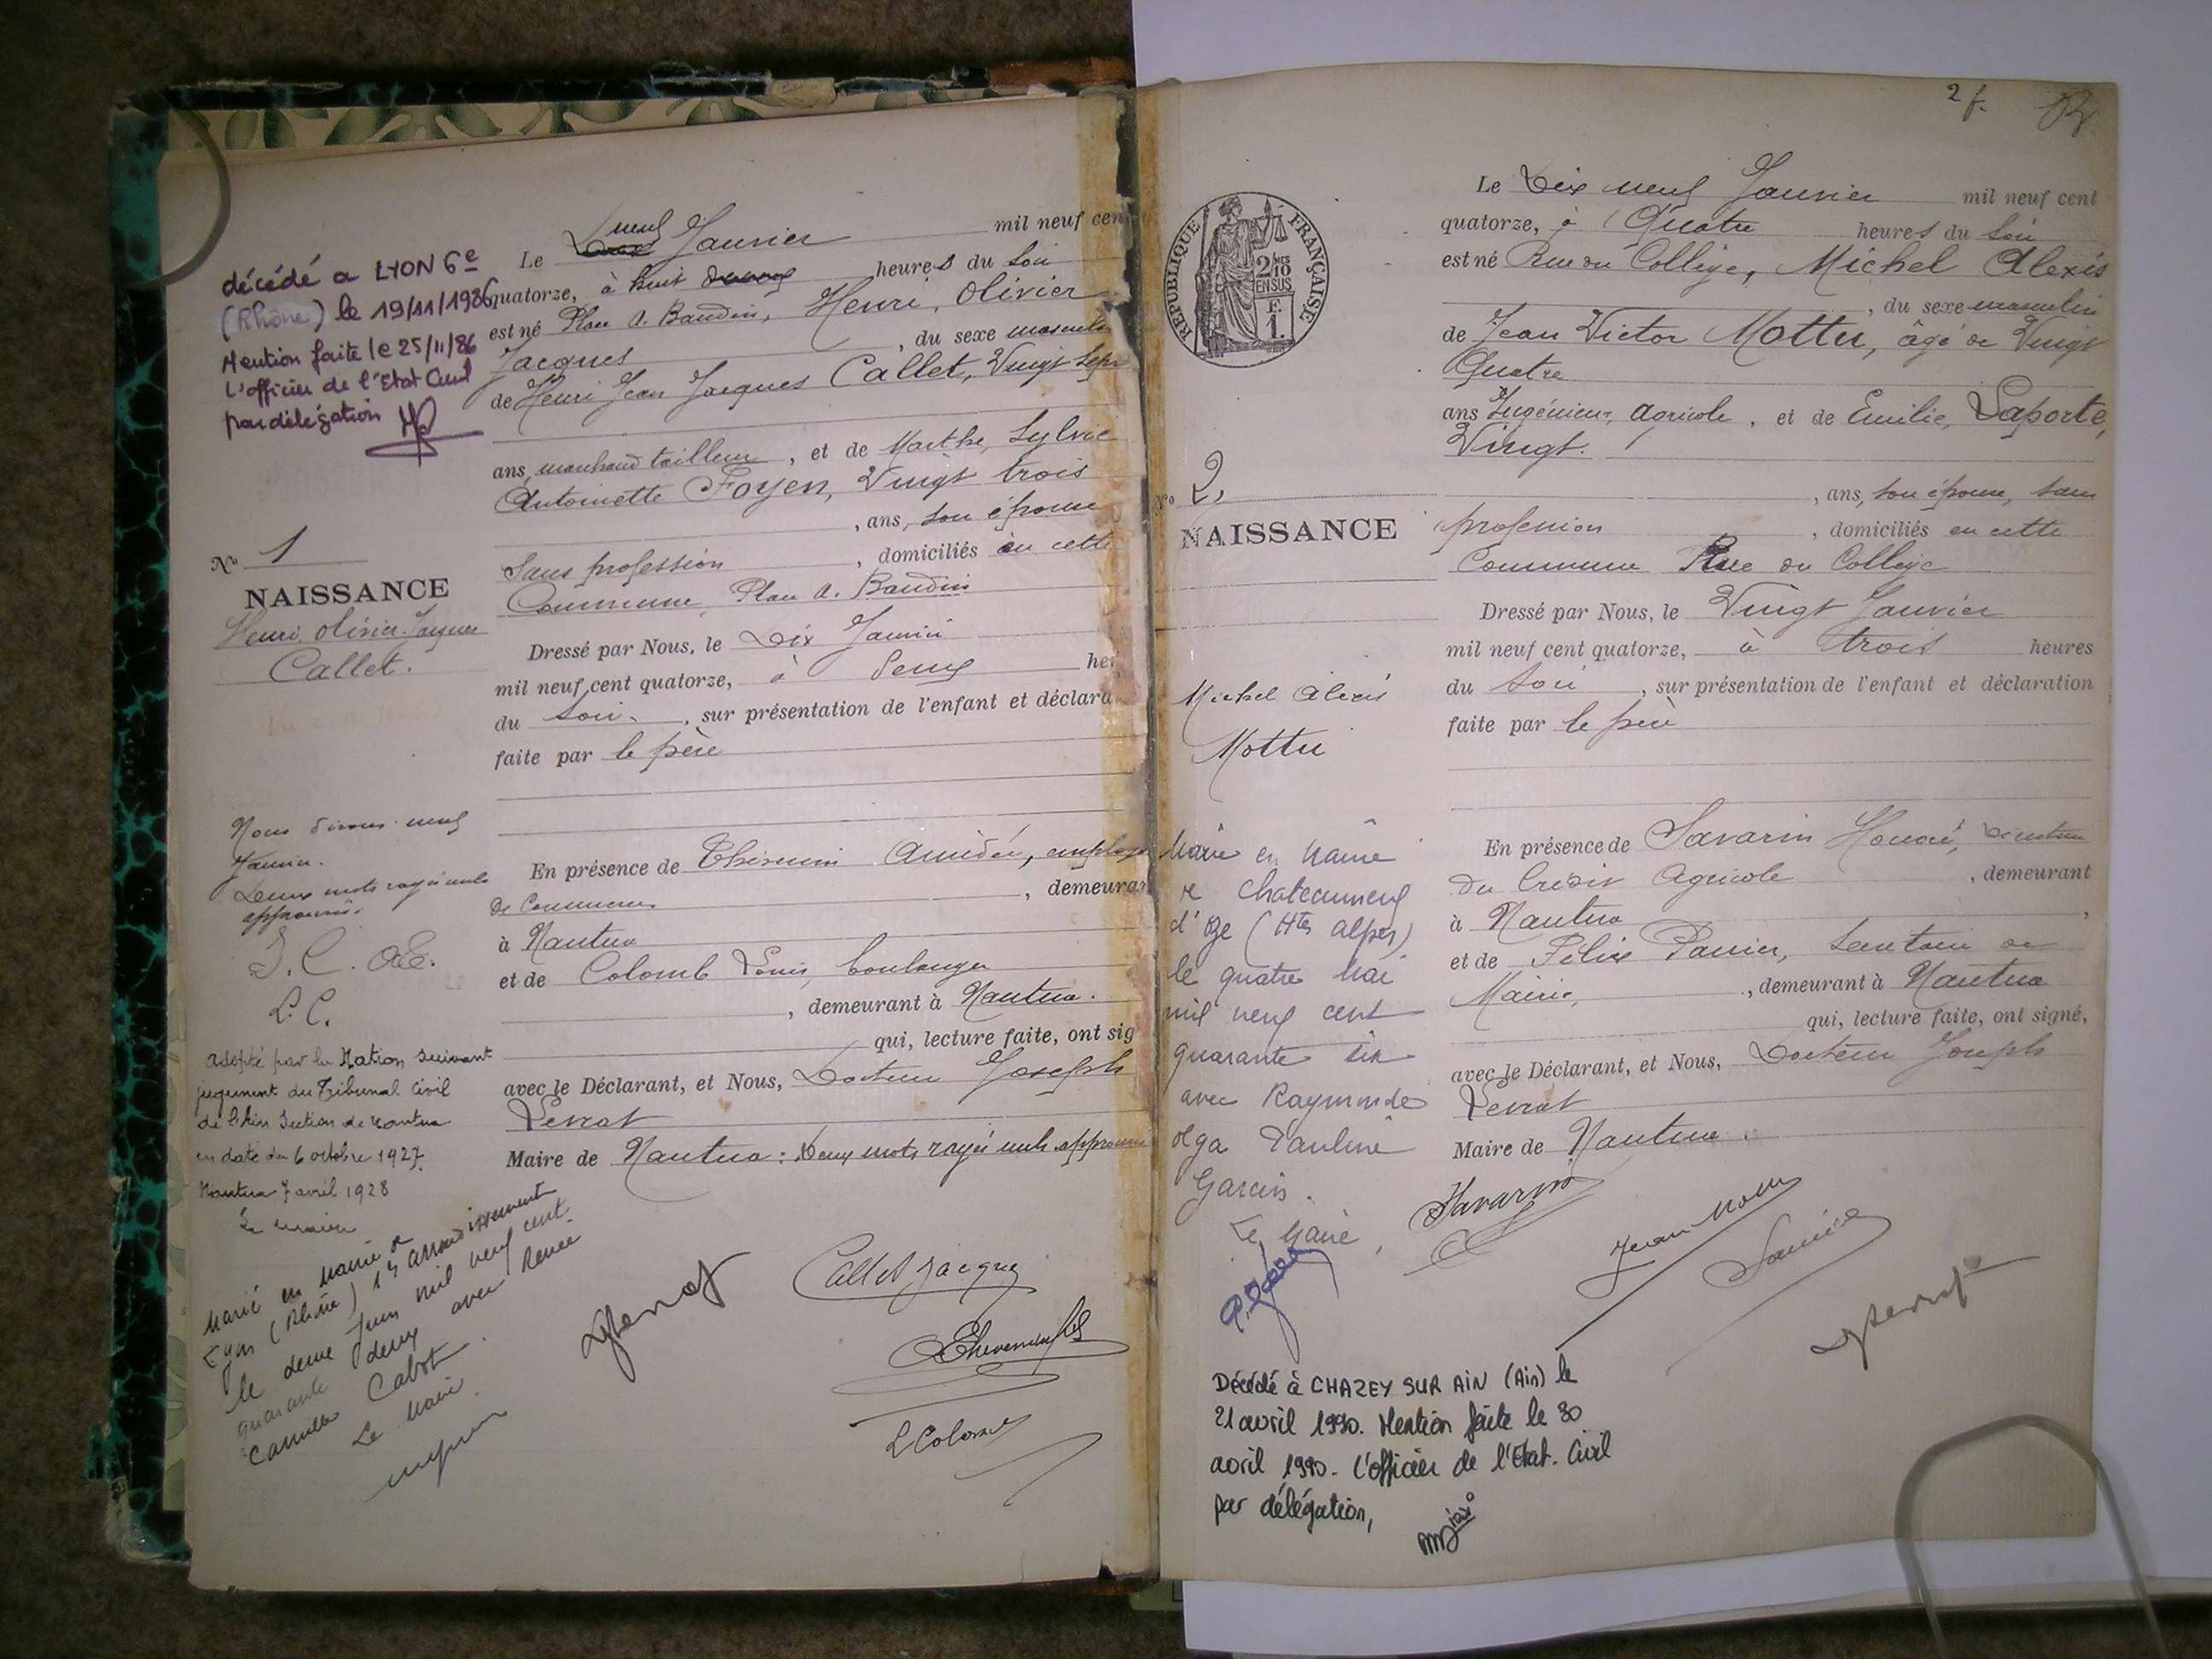 décédé a LYON 6e
(Rhône) le 19/11/1986
Mention faite le 25/11/86
L'officier de l'Etat Civil
par délégation
No 1
NAISSANCE
Henri Olivier Jacques
Callet.
Nous disons neuf
Janvier.
Deux mots rayés nuls
approuvés.
J. C.
L. C.
Adopté par la Nation suivant
jugement du Tribunal Civil
de l'Ain Section de Nantua
en date du 6 octobre 1927.
Nantua 7 avril 1928
Le maire
Marié en Mairie de
Lyon (Rhône) 1er arrondissement
le deux Juin mil neuf cent
quarante deux avec Renée
Camille Cabot.
Le Maire.
Le neuf Janvier mil neuf cen
quatorze, à huit heures du soir
est né Place A. Baudin, Henri, Olivier
Jacques, du sexe masculin
de Henri Jean Jacques Callet, Vingt sept
ans, marchand tailleur, et de Marthe, Sylvie
Antoinette Foyen, Vingt trois
, ans, son épouse
Sans profession, domiciliés en cette
Commune, Place A. Baudin
Dressé par Nous, le Dix Janvier
mil neuf cent quatorze, à heu
du soir, sur présentation de l'enfant et déclara
faite par le père
En présence de Amédée, employé
de Commerce, demeuran
à Nantua
et de Colomb Louis, boulanger
, demeurant à Nantua.
qui, lecture faite, ont sig
avec le Déclarant, et Nous, Docteur Joseph
Levrat
Maire de Nantua: Deux mots rayés nuls approuvés
Callet Jacques
L Colomb
2 f.
RÉPUBLIQUE FRANÇAISE
2/10
EN SUS
F.
1.
No 2,
NAISSANCE
Michel Alexis
Mottu
Marié en Mairie
de Chateauneuf
d'Oze (Htes Alpes)
le quatre Mai
mil neuf cent
quarante six
avec Raymonde
Olga Pauline
Garcin.
Le Maire,
Décédé à CHAZEY SUR AIN (Ain) le
21 avril 1990. Mention faite le 30
avril 1990. L'officier de l'Etat. Civil
par délégation,
Le Dix neuf Janvier mil neuf cent
quatorze, à Quatre heures du soir
est né Rue du Collège, Michel Alexis
, du sexe masculin
de Jean Victor Mottu, âgé de Vingt
Quatre
ans Ingénieur agricole, et de Emilie, Laporte,
Vingt.
, ans, son épouse, sans
profession, domiciliés en cette
Commune Rue du Collège
Dressé par Nous, le Vingt Janvier
mil neuf cent quatorze, à trois heures
du soir, sur présentation de l'enfant et déclaration
faite par le père
En présence de Savarin Honoré, Directeur
du Crédit Agricole, demeurant
à Nantua,
et de Félix Panier, Secrétaire de
Mairie, demeurant à Nantua
qui, lecture faite, ont signé,
avec le Déclarant, et Nous, Docteur Joseph
Levrat
Maire de Nantua.
Savarin
Jean Mottu